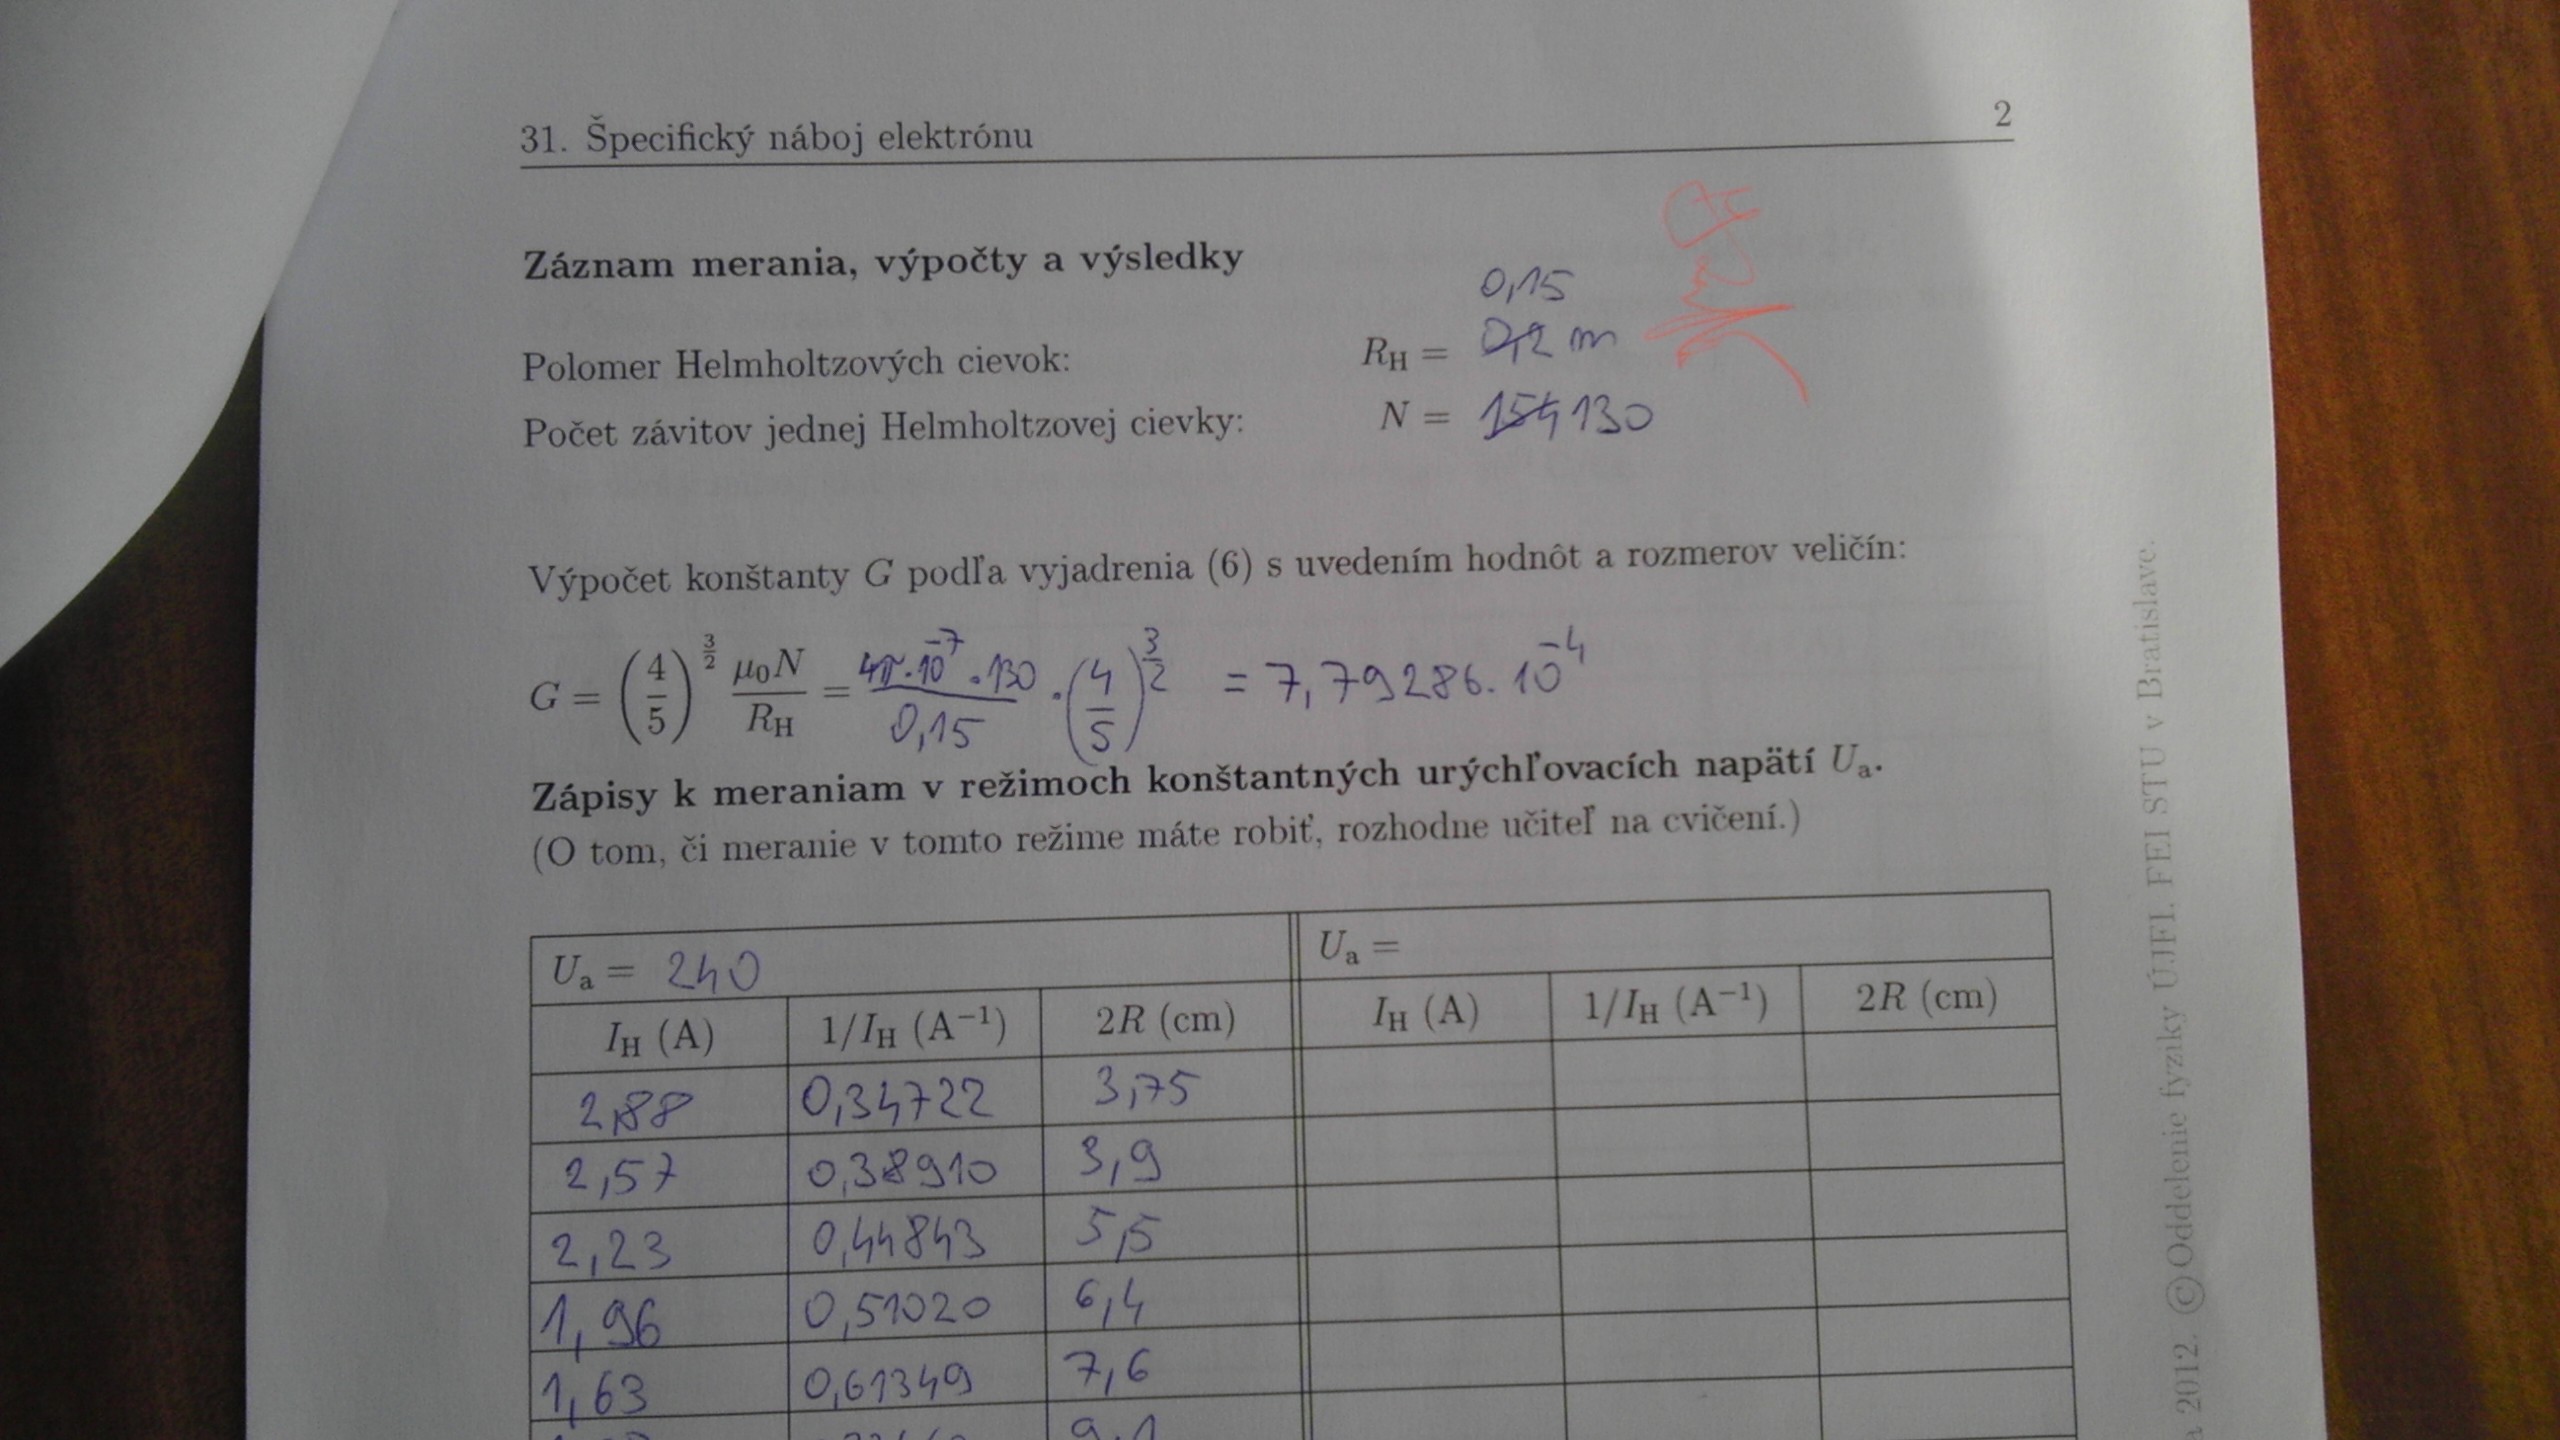 31. Špecifický náboj elektrónu 2
Záznam merania, výpočty a výsledky
0,15
Polomer Helmholtzových cievok: R_H = 0,2 m
Počet závitov jednej Helmholtzovej cievky: N = 154 130
Výpočet konštanty G podľa vyjadrenia (6) s uvedením hodnôt a rozmerov veličín:
G = (4/5)^(3/2) μ₀N/R_H = 4π·10⁻⁷·130/0,15 · (4/5)^(3/2) = 7,79286·10⁻⁴
Zápisy k meraniam v režimoch konštantných urýchľovacích napätí U_a.
(O tom, či meranie v tomto režime máte robiť, rozhodne učiteľ na cvičení.)
U_a = 240 U_a =
I_H (A) 1/I_H (A⁻¹) 2R (cm) I_H (A) 1/I_H (A⁻¹) 2R (cm)
2,88 0,34722 3,75
2,57 0,38910 3,9
2,23 0,44843 5,5
1,96 0,51020 6,4
1,63 0,61349 7,6
9,1
a 2012. ©Oddelenie fyziky ÚJFI. FEI STU v Bratislave.